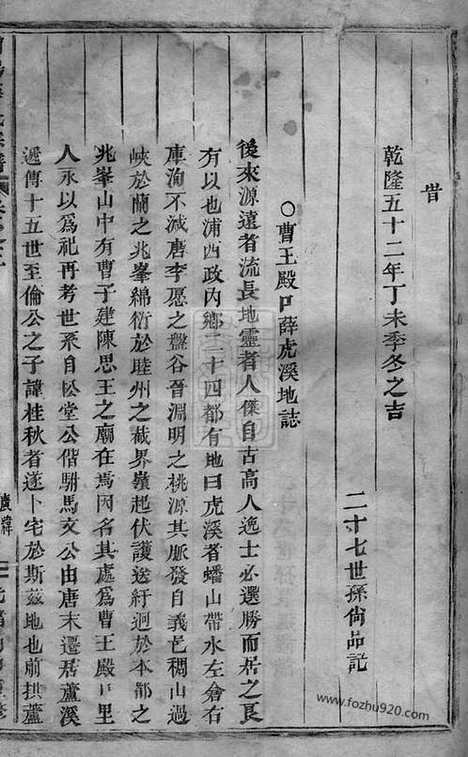 昔
乾隆五十二年丁未季冬之吉
二十七世孫尚品記
○曹王殿口薛虎溪地誌
後來源遠者流長地靈者人傑自古高人逸士必選勝而居之良
有以也浦西政內鄉二十四都有地曰虎溪者蟠山帶水左倉右
庫洵不減唐李愿之盤谷晉淵明之桃源其脈發自義邑稠山過
峽於蘭之兆峯綿衍於睦州之截界嶺起伏護送紆迴於本都之
兆峯山中有曹子建陳思王之廟在焉因名其處為曹王殿口里
人永以為祀再考世系自松堂公偕駙馬文公由唐末遷居蘆溪
遞傳十五世至倫公之子諱桂秋者遂卜宅於斯茲地也前拱蘆
www.fozhu920.com